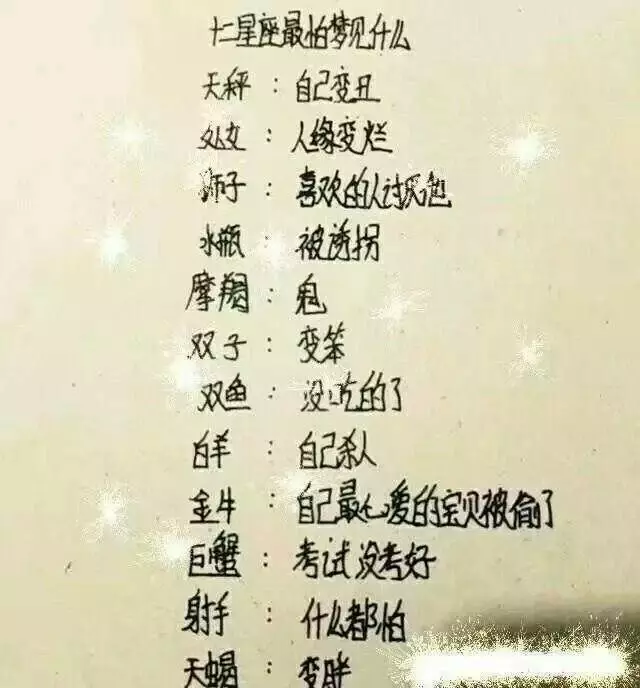 十二星座最怕梦见什么
天秤：自己变丑
处女：人缘变烂
狮子：喜欢的人讨厌她
水瓶：被诱拐
摩羯：鬼
双子：变笨
双鱼：没吃的了
白羊：自己杀人
金牛：自己最心爱的宝贝被偷了
巨蟹：考试没考好
射手：什么都怕
天蝎：变胖